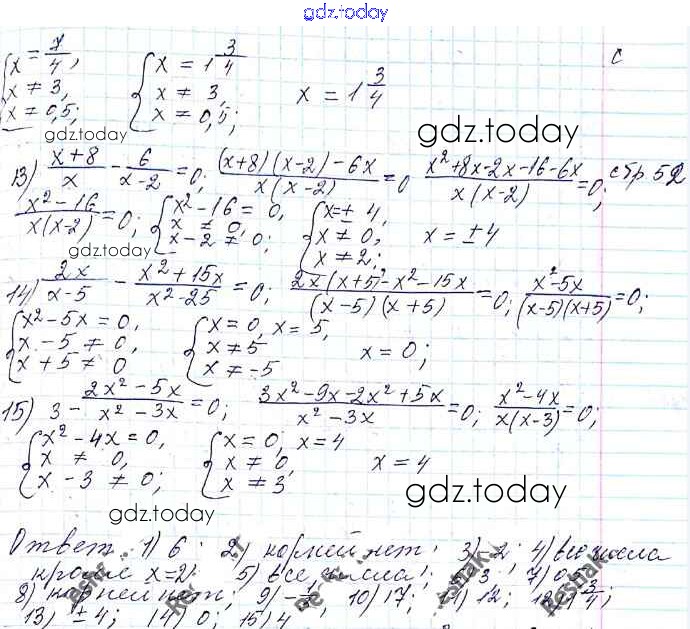 gdz.today
x = 7/4,
x ≠ 3,
x ≠ 0,5;
x = 1 3/4
x ≠ 3,
x ≠ 0,5;
x = 1 3/4
с
gdz.today
gdz.today
13) (x+8)/x - 6/(x-2) = 0; ((x+8)(x-2)-6x)/(x(x-2)) = 0 (x²+8x-2x-16-6x)/(x(x-2)) = 0; стр 52
(x²-16)/(x(x-2)) = 0; { x²-16 = 0, x ≠ 0, x-2 ≠ 0; { x = ± 4, x ≠ 0, x ≠ 2; x = ±4
gdz.today
14) 2x/(x-5) - (x²+15x)/(x²-25) = 0; (2x(x+5)-x²-15x)/((x-5)(x+5)) = 0; (x²-5x)/((x-5)(x+5)) = 0;
{ x²-5x = 0, x-5 ≠ 0, x+5 ≠ 0 { x = 0, x = 5, x ≠ 5 x ≠ -5 x = 0;
15) 3 - (2x²-5x)/(x²-3x) = 0; (3x²-9x-2x²+5x)/(x²-3x) = 0; (x²-4x)/(x(x-3)) = 0;
{ x²-4x = 0, x ≠ 0, x-3 ≠ 0; { x = 0; x = 4 x ≠ 0, x ≠ 3 x = 4
gdz.today
gdz.today
Ответ: 1) 6; 2) корней нет; 3) -2; 4) все числа
кроме x=2; 5) все числа; 6) 3; 7) 0,5;
8) корней нет; 10) 17; 11) 12;
13) ±4; 14) 0; 15) 4